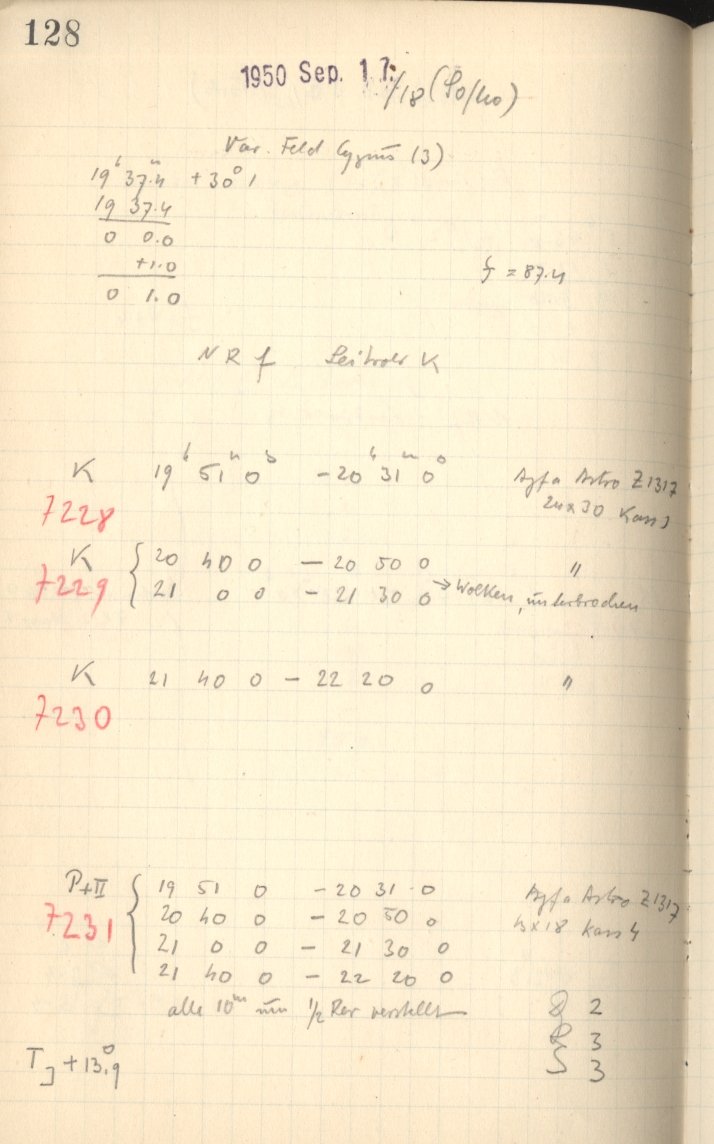 128
1950 Sep. 17./18 (So/Mo)
Var. Feld Cygnus (3)
19ʰ 37ᵐ.4 +30° 1
19 37.4
0 0.0
+1.0
0 1.0
f = 87.4
N R f Leitrohr K
K 19ʰ 51ᵐ 0ˢ - 20ʰ 31ᵐ 0ˢ Agfa Astro Z1317
7228 24x30 Kass
K { 20 40 0 - 20 50 0 "
7229 21 0 0 - 21 30 0 → Wolken, unterbrochen
K 21 40 0 - 22 20 0 "
7230
P+II { 19 51 0 - 20 31 0 Agfa Astro Z1317
7231 20 40 0 - 20 50 0 Kass 4
21 0 0 - 21 30 0
21 40 0 - 22 20 0
alle 10ᵐ um 1/2 Rev verstellt
2
R 3
S 3
T +13°.9